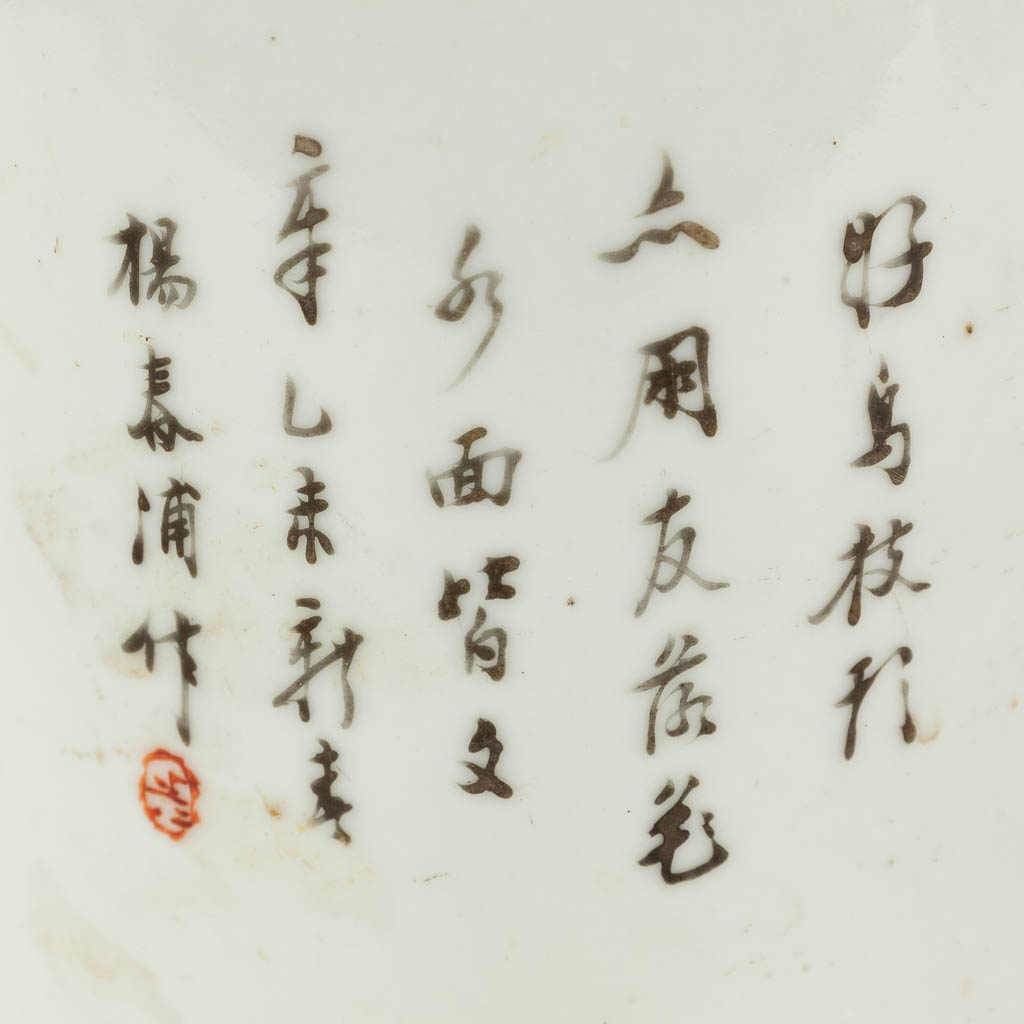 好鳥枝頭
亦朋友落花
水面皆文
章乙未新春
楊春浦作